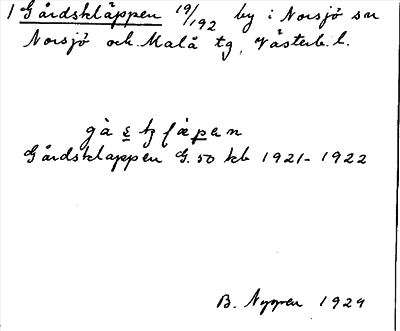 1 Gårdskläppen 19/192 by i Norsjö sn
Norsjö och Malå tg, Västerb. l.
Gårdsklappen G. 50 kb 1921-1922
B. Nyman 1924